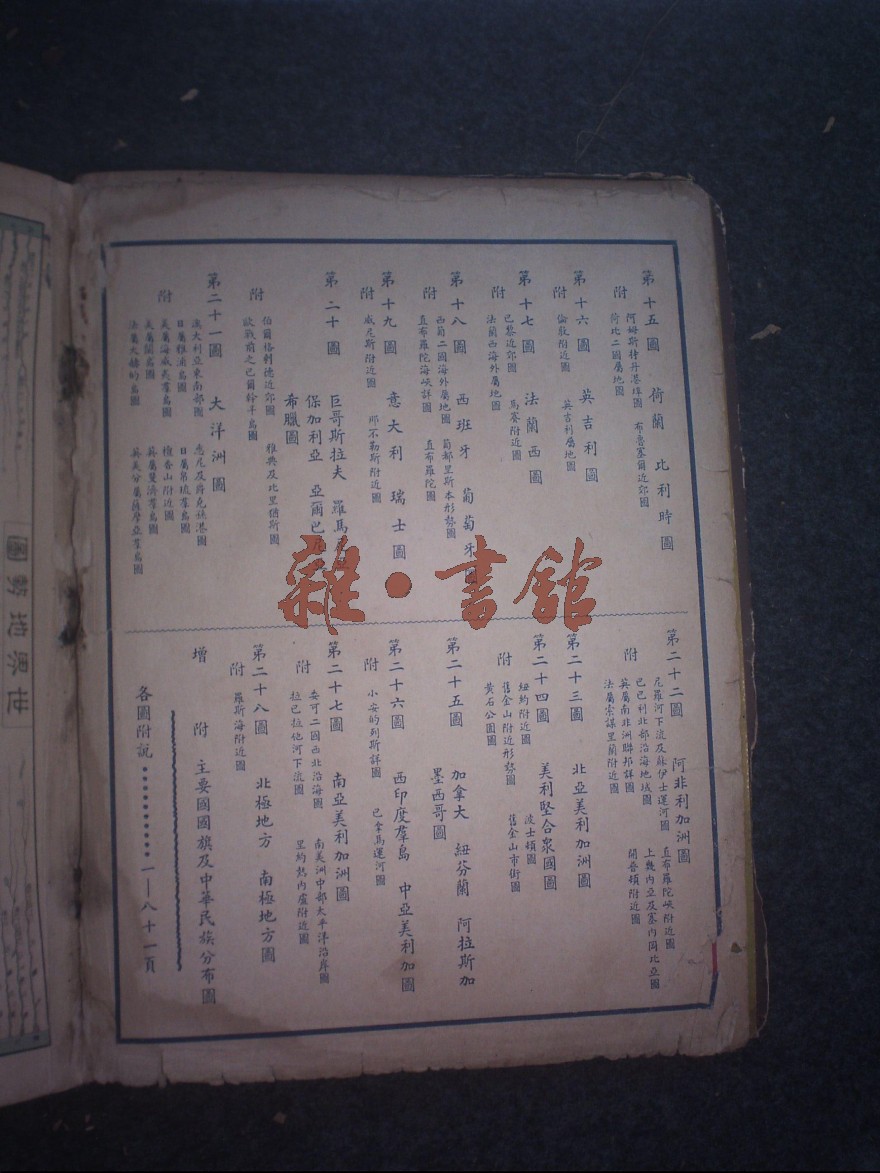 第十五圖 荷蘭 比利時圖
附
阿姆斯特丹港埠圖 布魯塞爾近郊圖
荷比二國屬地圖
第十六圖 英吉利圖
附 倫敦附近圖 英吉利屬地圖
第十七圖 法蘭西圖
附
巴黎近郊圖 馬賽附近圖
法蘭西海外屬地圖
第十八圖 西班牙 葡萄牙
附
西葡二國海外屬地圖 葡都里斯本形勢圖
直布羅陀海峽詳圖 直布羅陀圖
第十九圖 意大利 瑞士圖
附 威尼斯附近圖 那不勒斯附近圖
第二十圖
巨哥斯拉夫 羅馬
保加利亞 亞爾巴
希臘圖
附
伯爾格剌德近郊圖 雅典及比里猶斯圖
歐戰前之巴爾幹半島圖
第二十一圖 大洋洲圖
附
澳大利亞東南部圖 悉尼及爵克遜港圖
日屬雅浦島圖 日屬帛琉羣島圖
美屬海威夷羣島圖 檀香山附近圖
美屬關島圖 英屬斐濟羣島圖
法屬大赫的島圖 英美分屬薩摩亞羣島圖
第二十二圖 阿非利加洲圖
附
尼羅河下流及蘇伊士運河圖 直布羅陀峽附近圖
巴巴利北部沿海地域圖 上幾內亞及塞內岡比亞圖
英屬南非洲聯邦詳圖 開普頓附近圖
法屬突謀里蘭附近圖
第二十三圖 北亞美利加洲圖
第二十四圖 美利堅合衆國圖
附
紐約附近圖 波士頓圖
舊金山附近形勢圖 舊金山市街圖
黃石公園圖
第二十五圖
加拿大 紐芬蘭 阿拉斯加
墨西哥圖
第二十六圖 西印度羣島 中亞美利加圖
附 小安的列斯詳圖 巴拿馬運河圖
第二十七圖 南亞美利加洲圖
附
委可二國西北沿海圖 南美洲中部太平洋沿岸圖
拉巴拉他河下流圖 里約熱內盧附近圖
第二十八圖 北極地方 南極地方圖
附 羅斯海附近圖
增附 主要國國旗及中華民族分布圖
各圖附說…………一—八十一頁
世界地勢圖
雜·書館